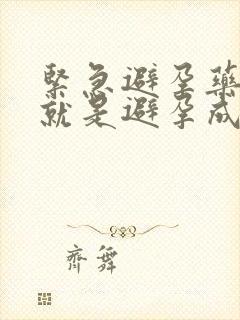 緊急避孕藥
就是避孕成
齊舞